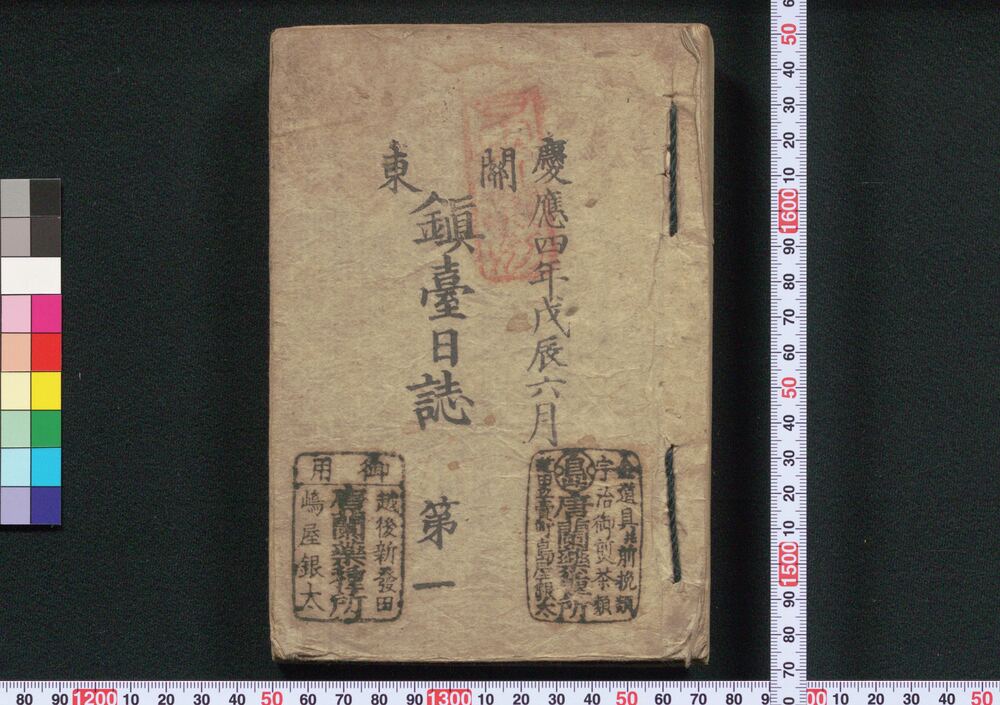 慶應四年戊辰六月
關東
鎮臺日誌
第一
宇治御煎茶類
唐蘭藥種所
御用
越後新發田
唐蘭藥種所
嶋屋銀太
80 90 1200 10 20 30 40 50 60 70 80 90 1300 10 20 30 40 50 60 70 80 90
10 20 30 40 50
50 40 30 20 10 1600 90 80 70 60 50 40 30 20 10 1500 90 80 70